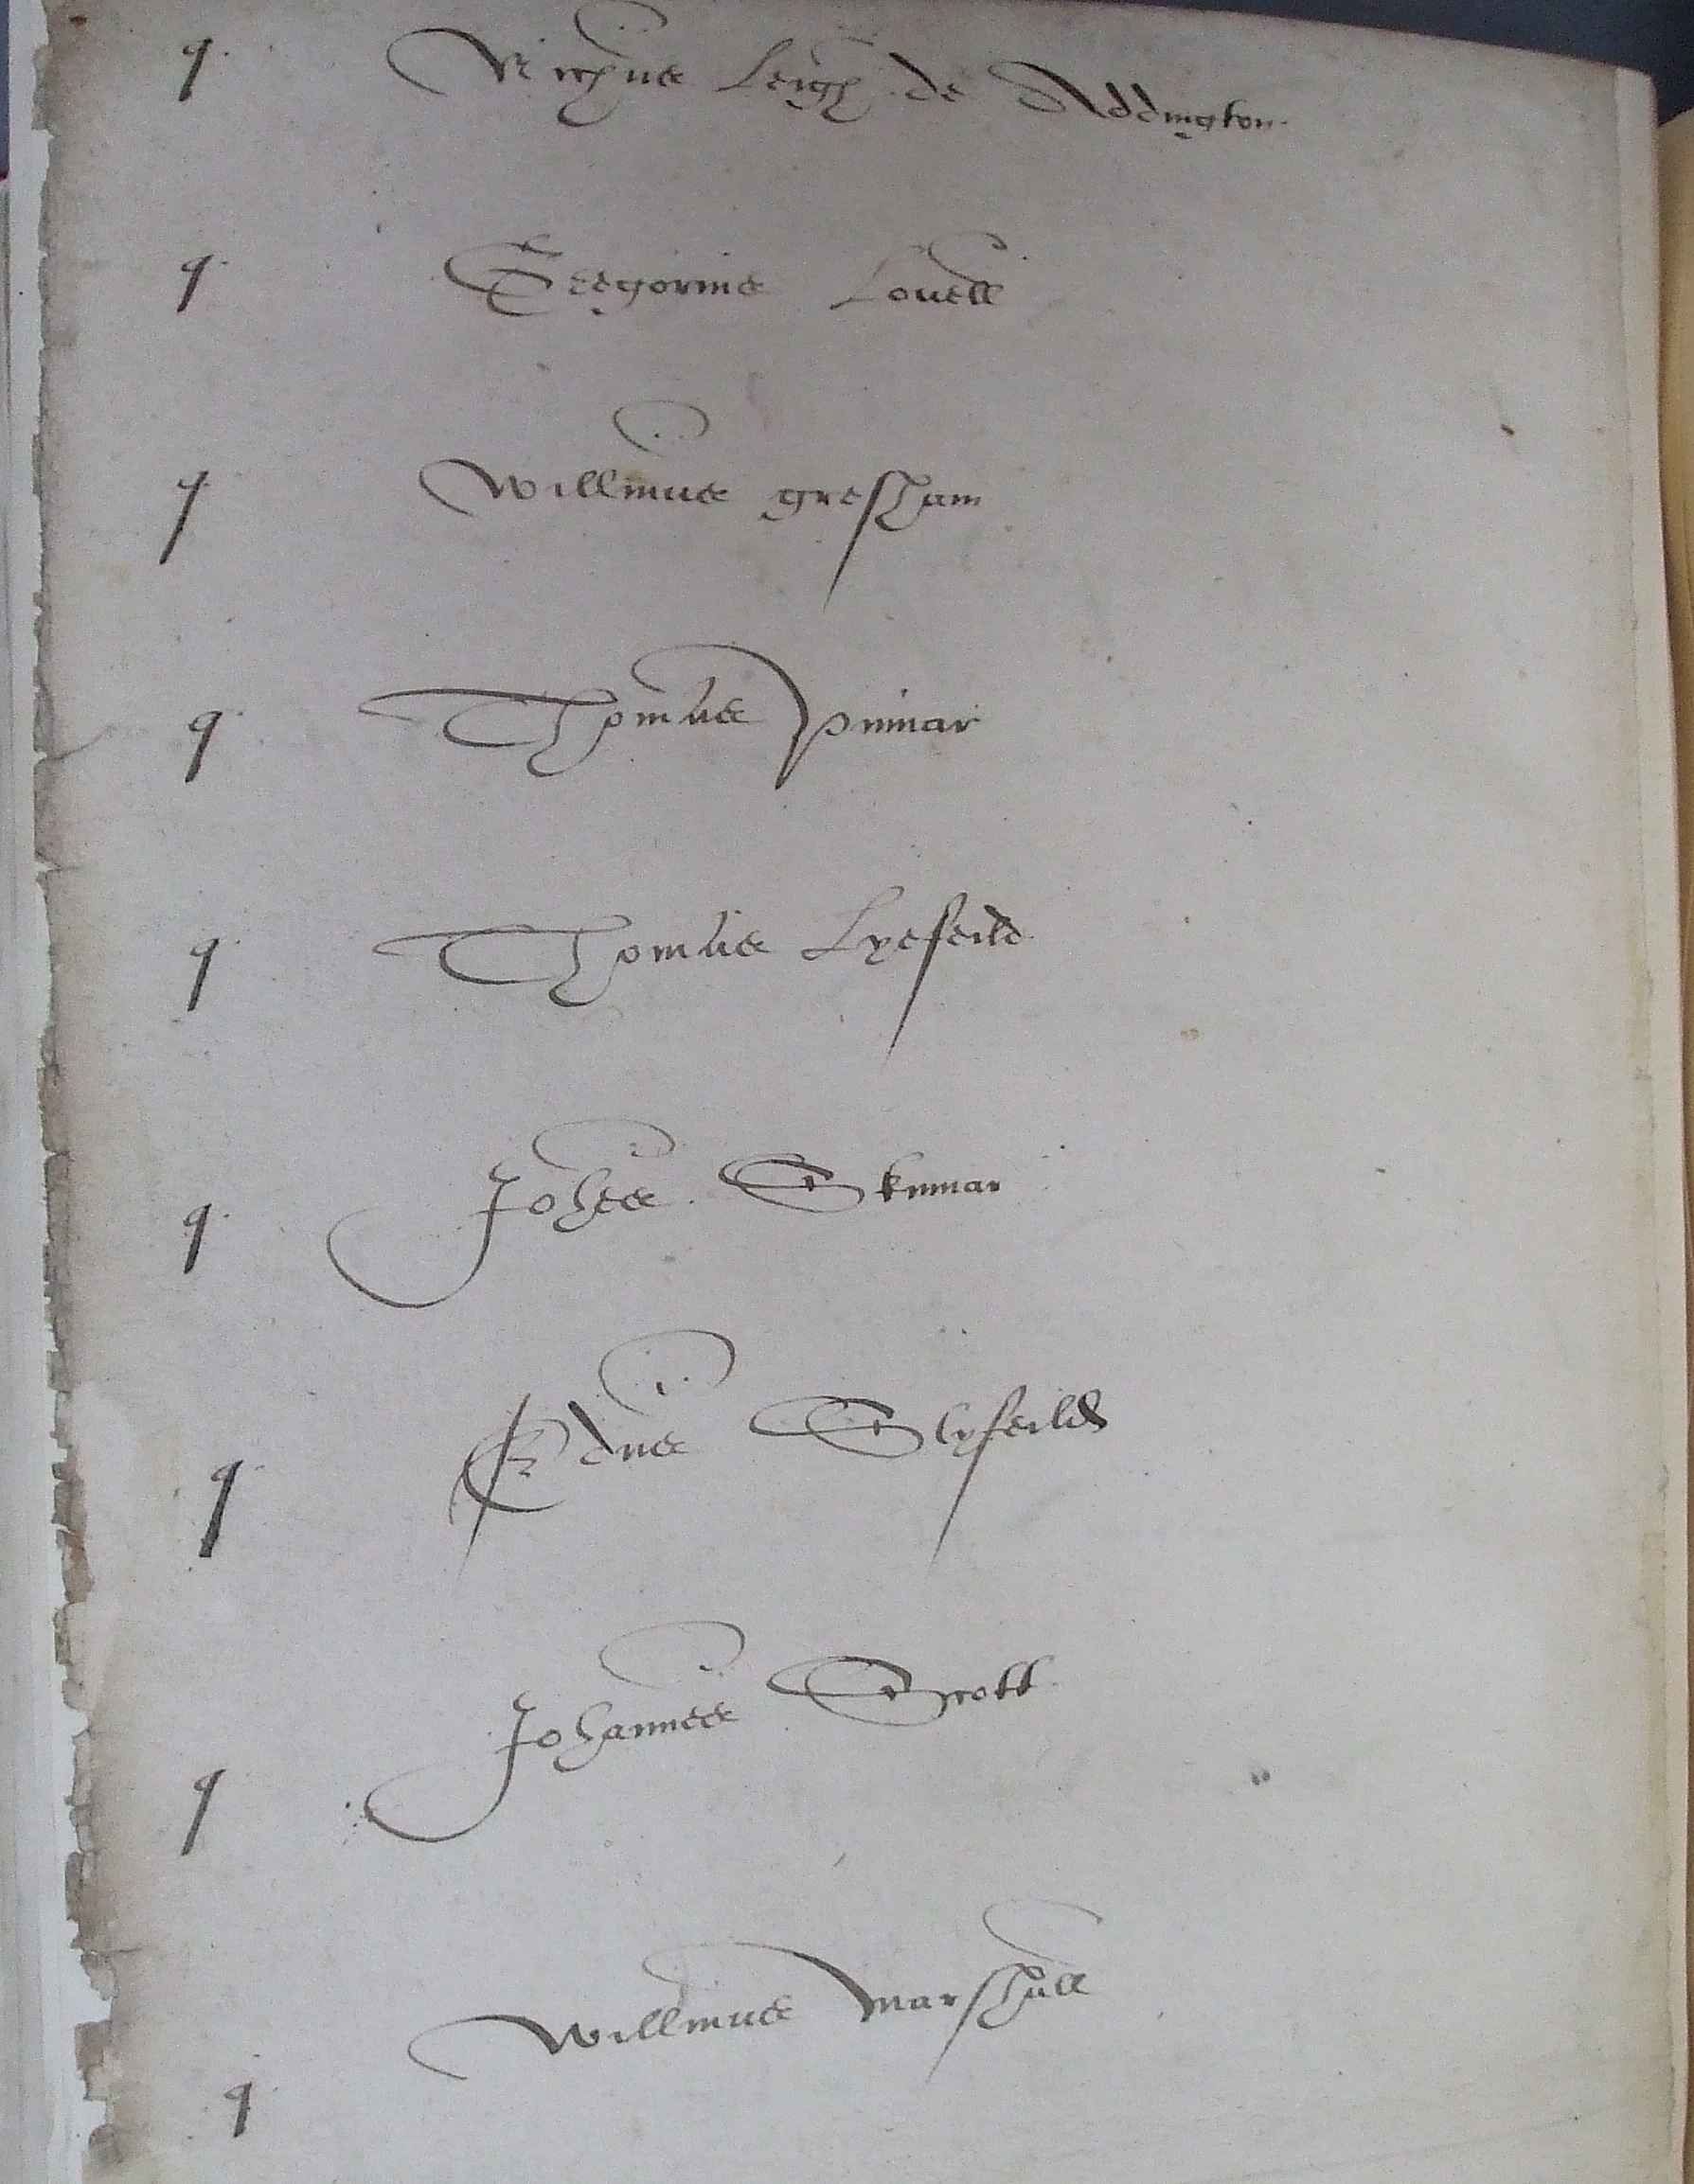 q Nichus Leigh de Addington
q Gregorius Louell
q Willmus gresham
q Thomas
q Thomas Lyefeild
q Johes Skinnar
q Edus Slyfeild
q Johannes Scott
q Willmus Marshall